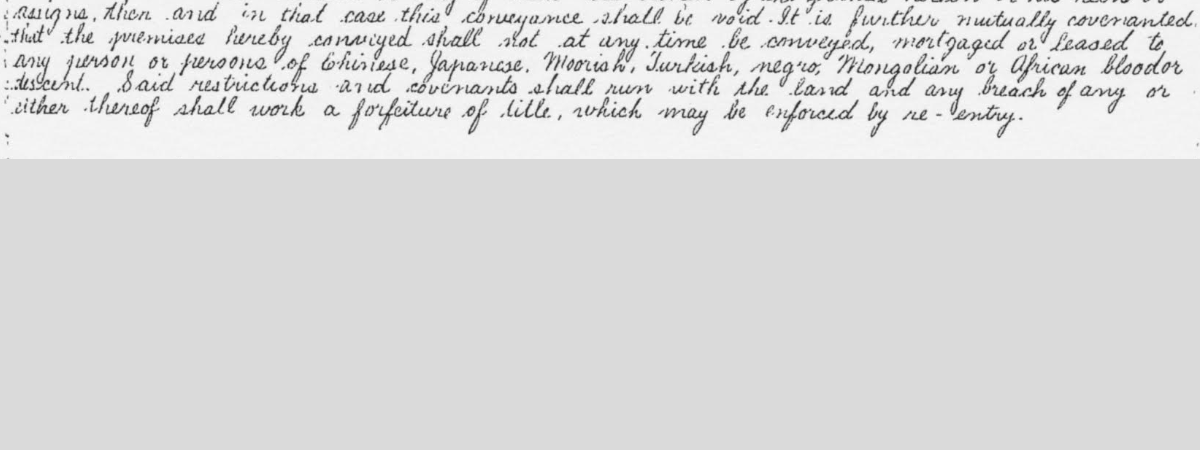 assigns, then and in that case this conveyance shall be void. It is further mutually covenanted
that the premises hereby conveyed shall not at any time be conveyed, mortgaged or leased to
any person or persons of Chinese, Japanese, Moorish, Turkish, negro, Mongolian or African blood or
descent. Said restrictions and covenants shall run with the land and any breach of any or
either thereof shall work a forfeiture of title, which may be enforced by re-entry.